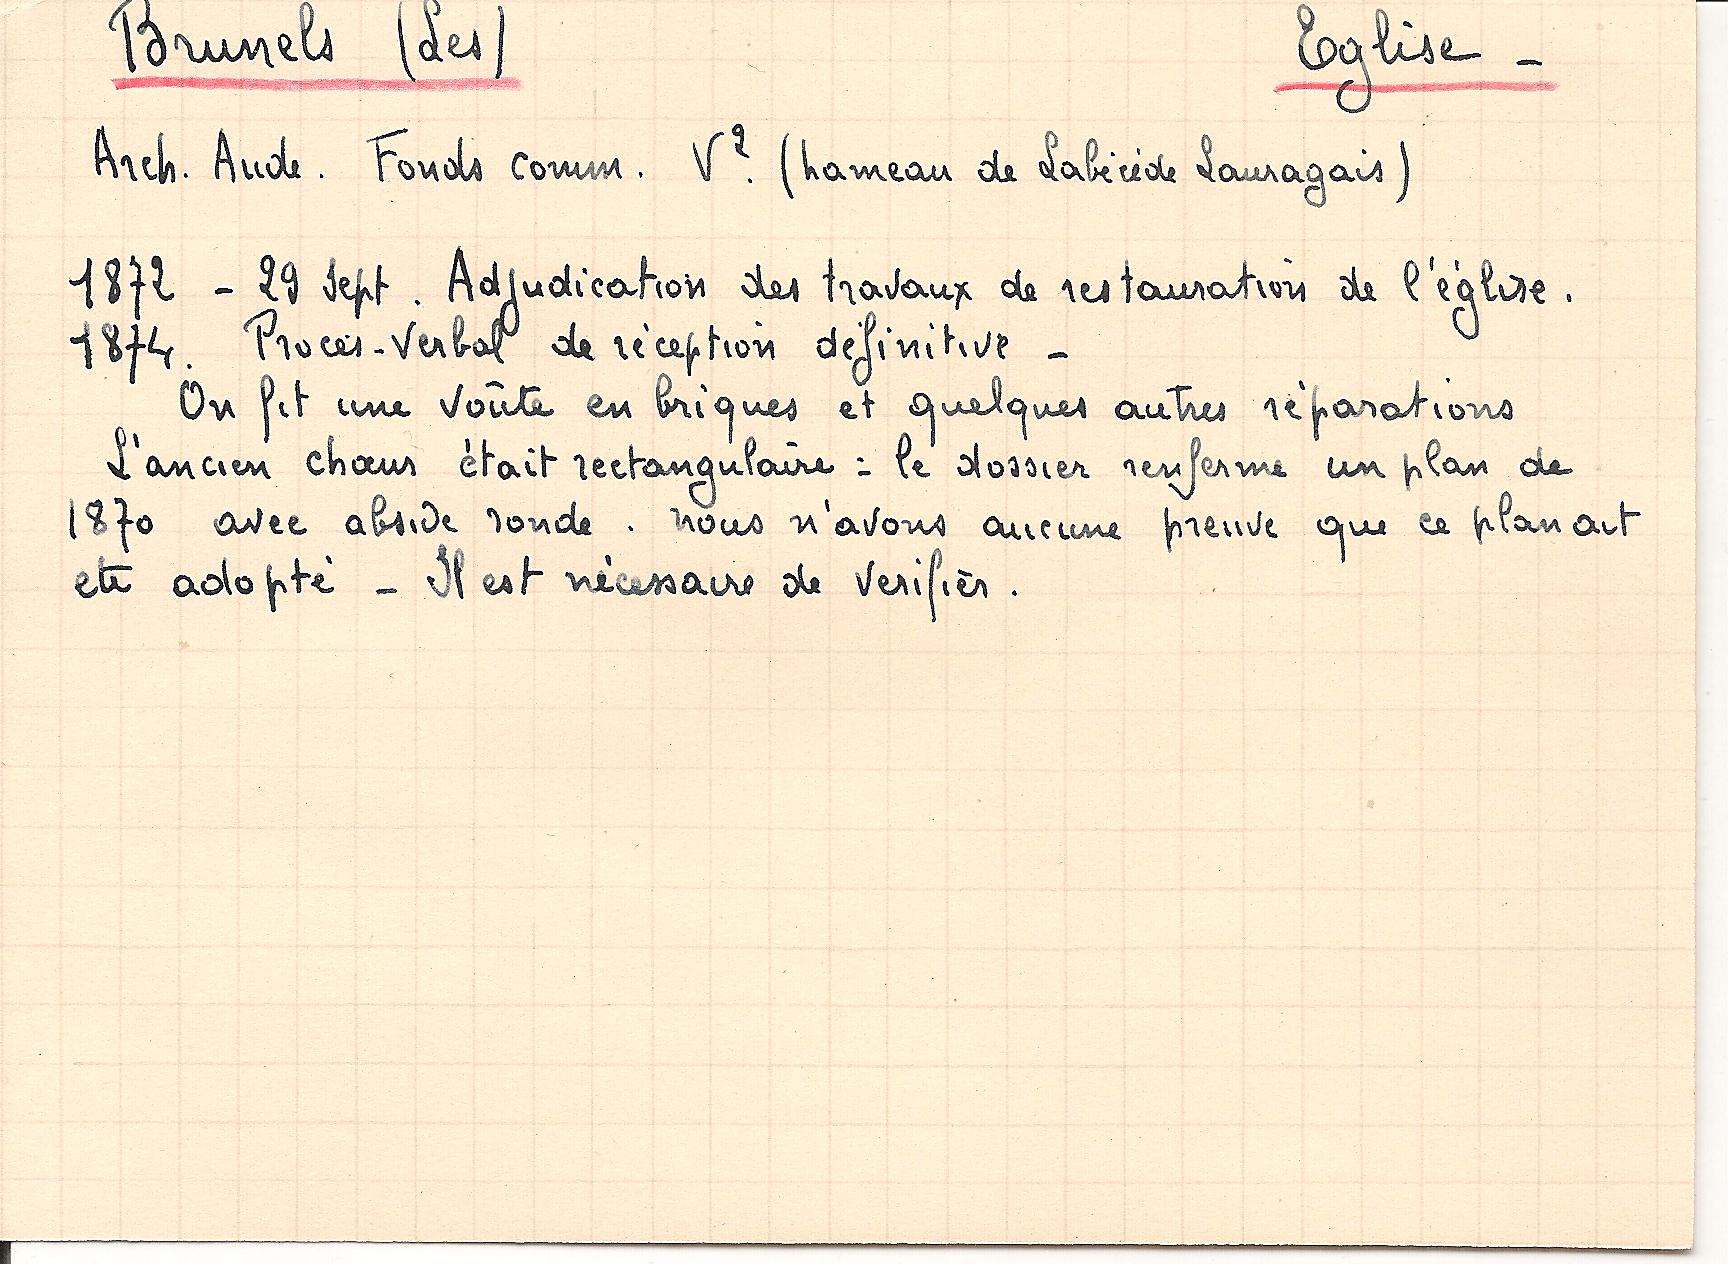 Brunels (Les) Eglise -
Arch. Aude. Fonds comm. V². (hameau de Labécède Lauragais)
1872 - 29 Sept. Adjudication des travaux de restauration de l'église.
1874. Procès-Verbal de réception définitive -
On fit une voûte en briques et quelques autres réparations
L'ancien chœur était rectangulaire : le dossier renferme un plan de
1870 avec abside ronde. nous n'avons aucune preuve que ce plan ait
été adopté - Il est nécessaire de vérifier.